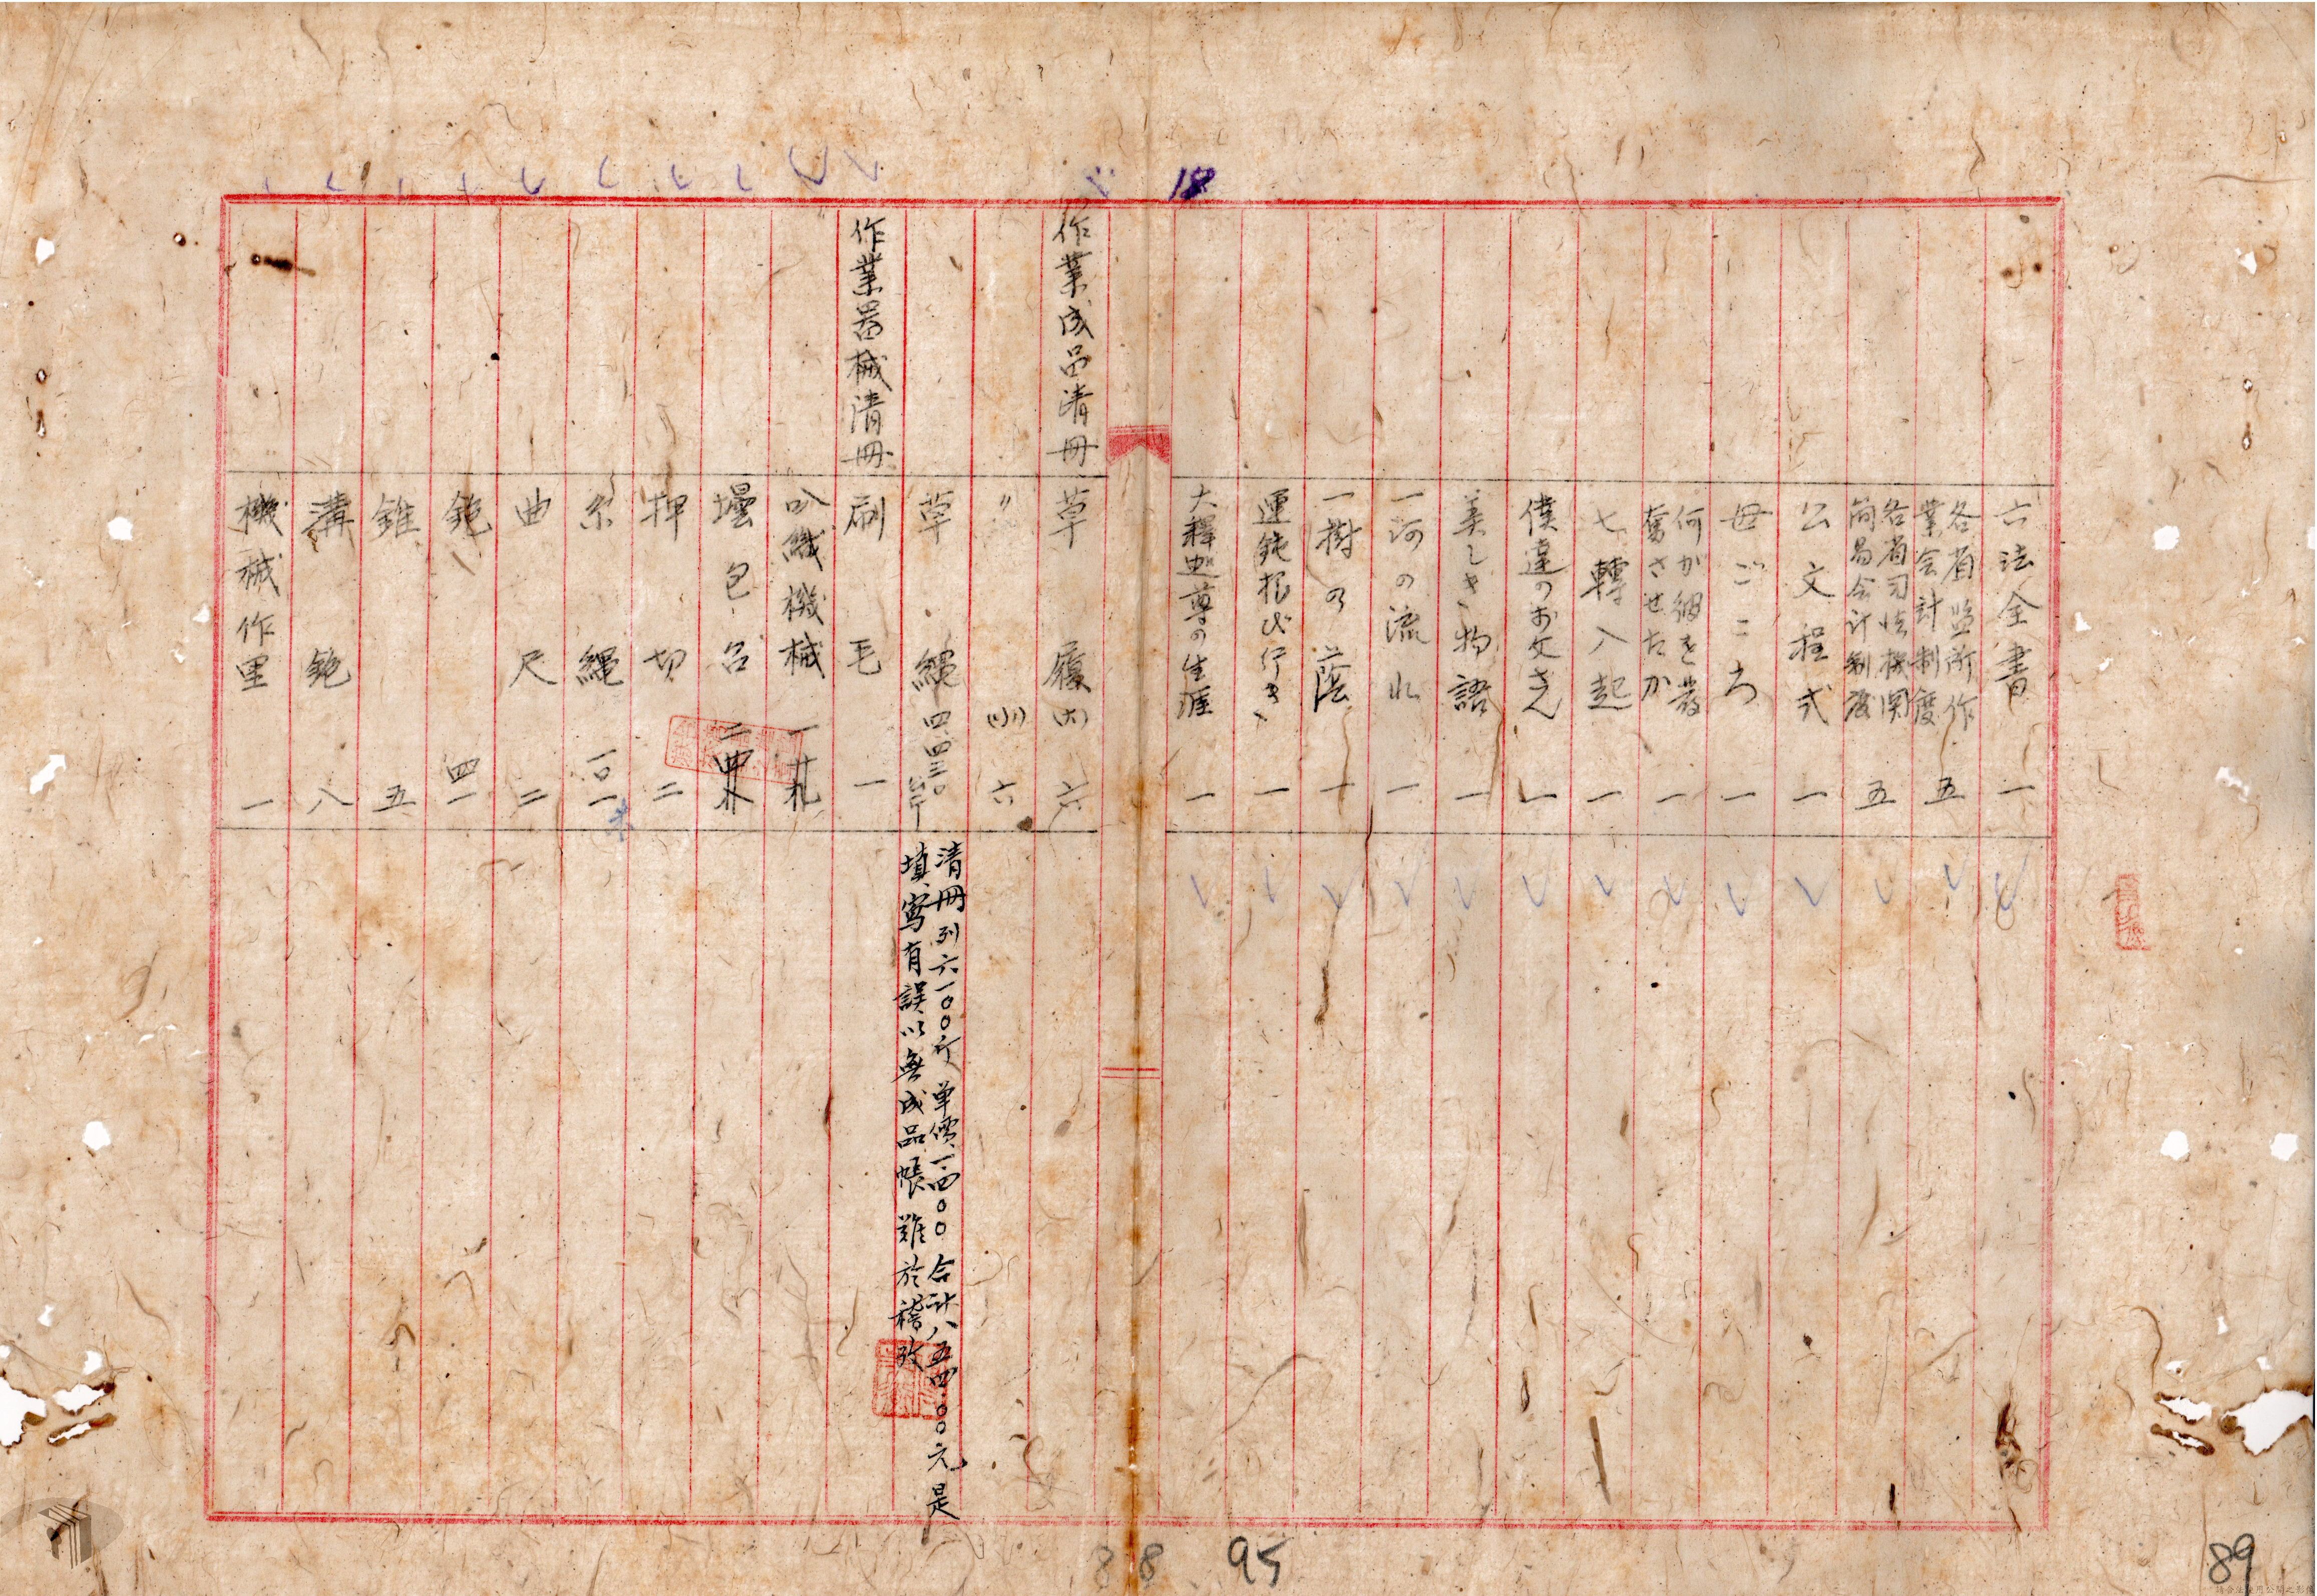 18
六法全書 一
各省監所作業会計制度 五
各省司法機関簡易会计制度 五
公文程式 一
母ごころ 一
何が彼を發奮させたか 一
七轉八起 一
僕達のお父さん 一
美しき物語 一
一河の流れ 一
一樹の蔭 一
運鈍根び行き 一
大釋迦尊の生涯 一
作業成品清冊 草履(大) 六
〃 (小) 六
草繩 四、四三〇台斤
清冊列六一〇〇斤單價一四〇〇合計八五四.〇〇元是
填寫有誤以無成品帳難於稽攷
作業器械清冊 刷毛 一
叺織機械 一
壜包台 二
押切 二
糸繩 一〇一米
曲尺 二
鉋 四一
錐 五
溝鉋 八
機械作里 一
88 95
89